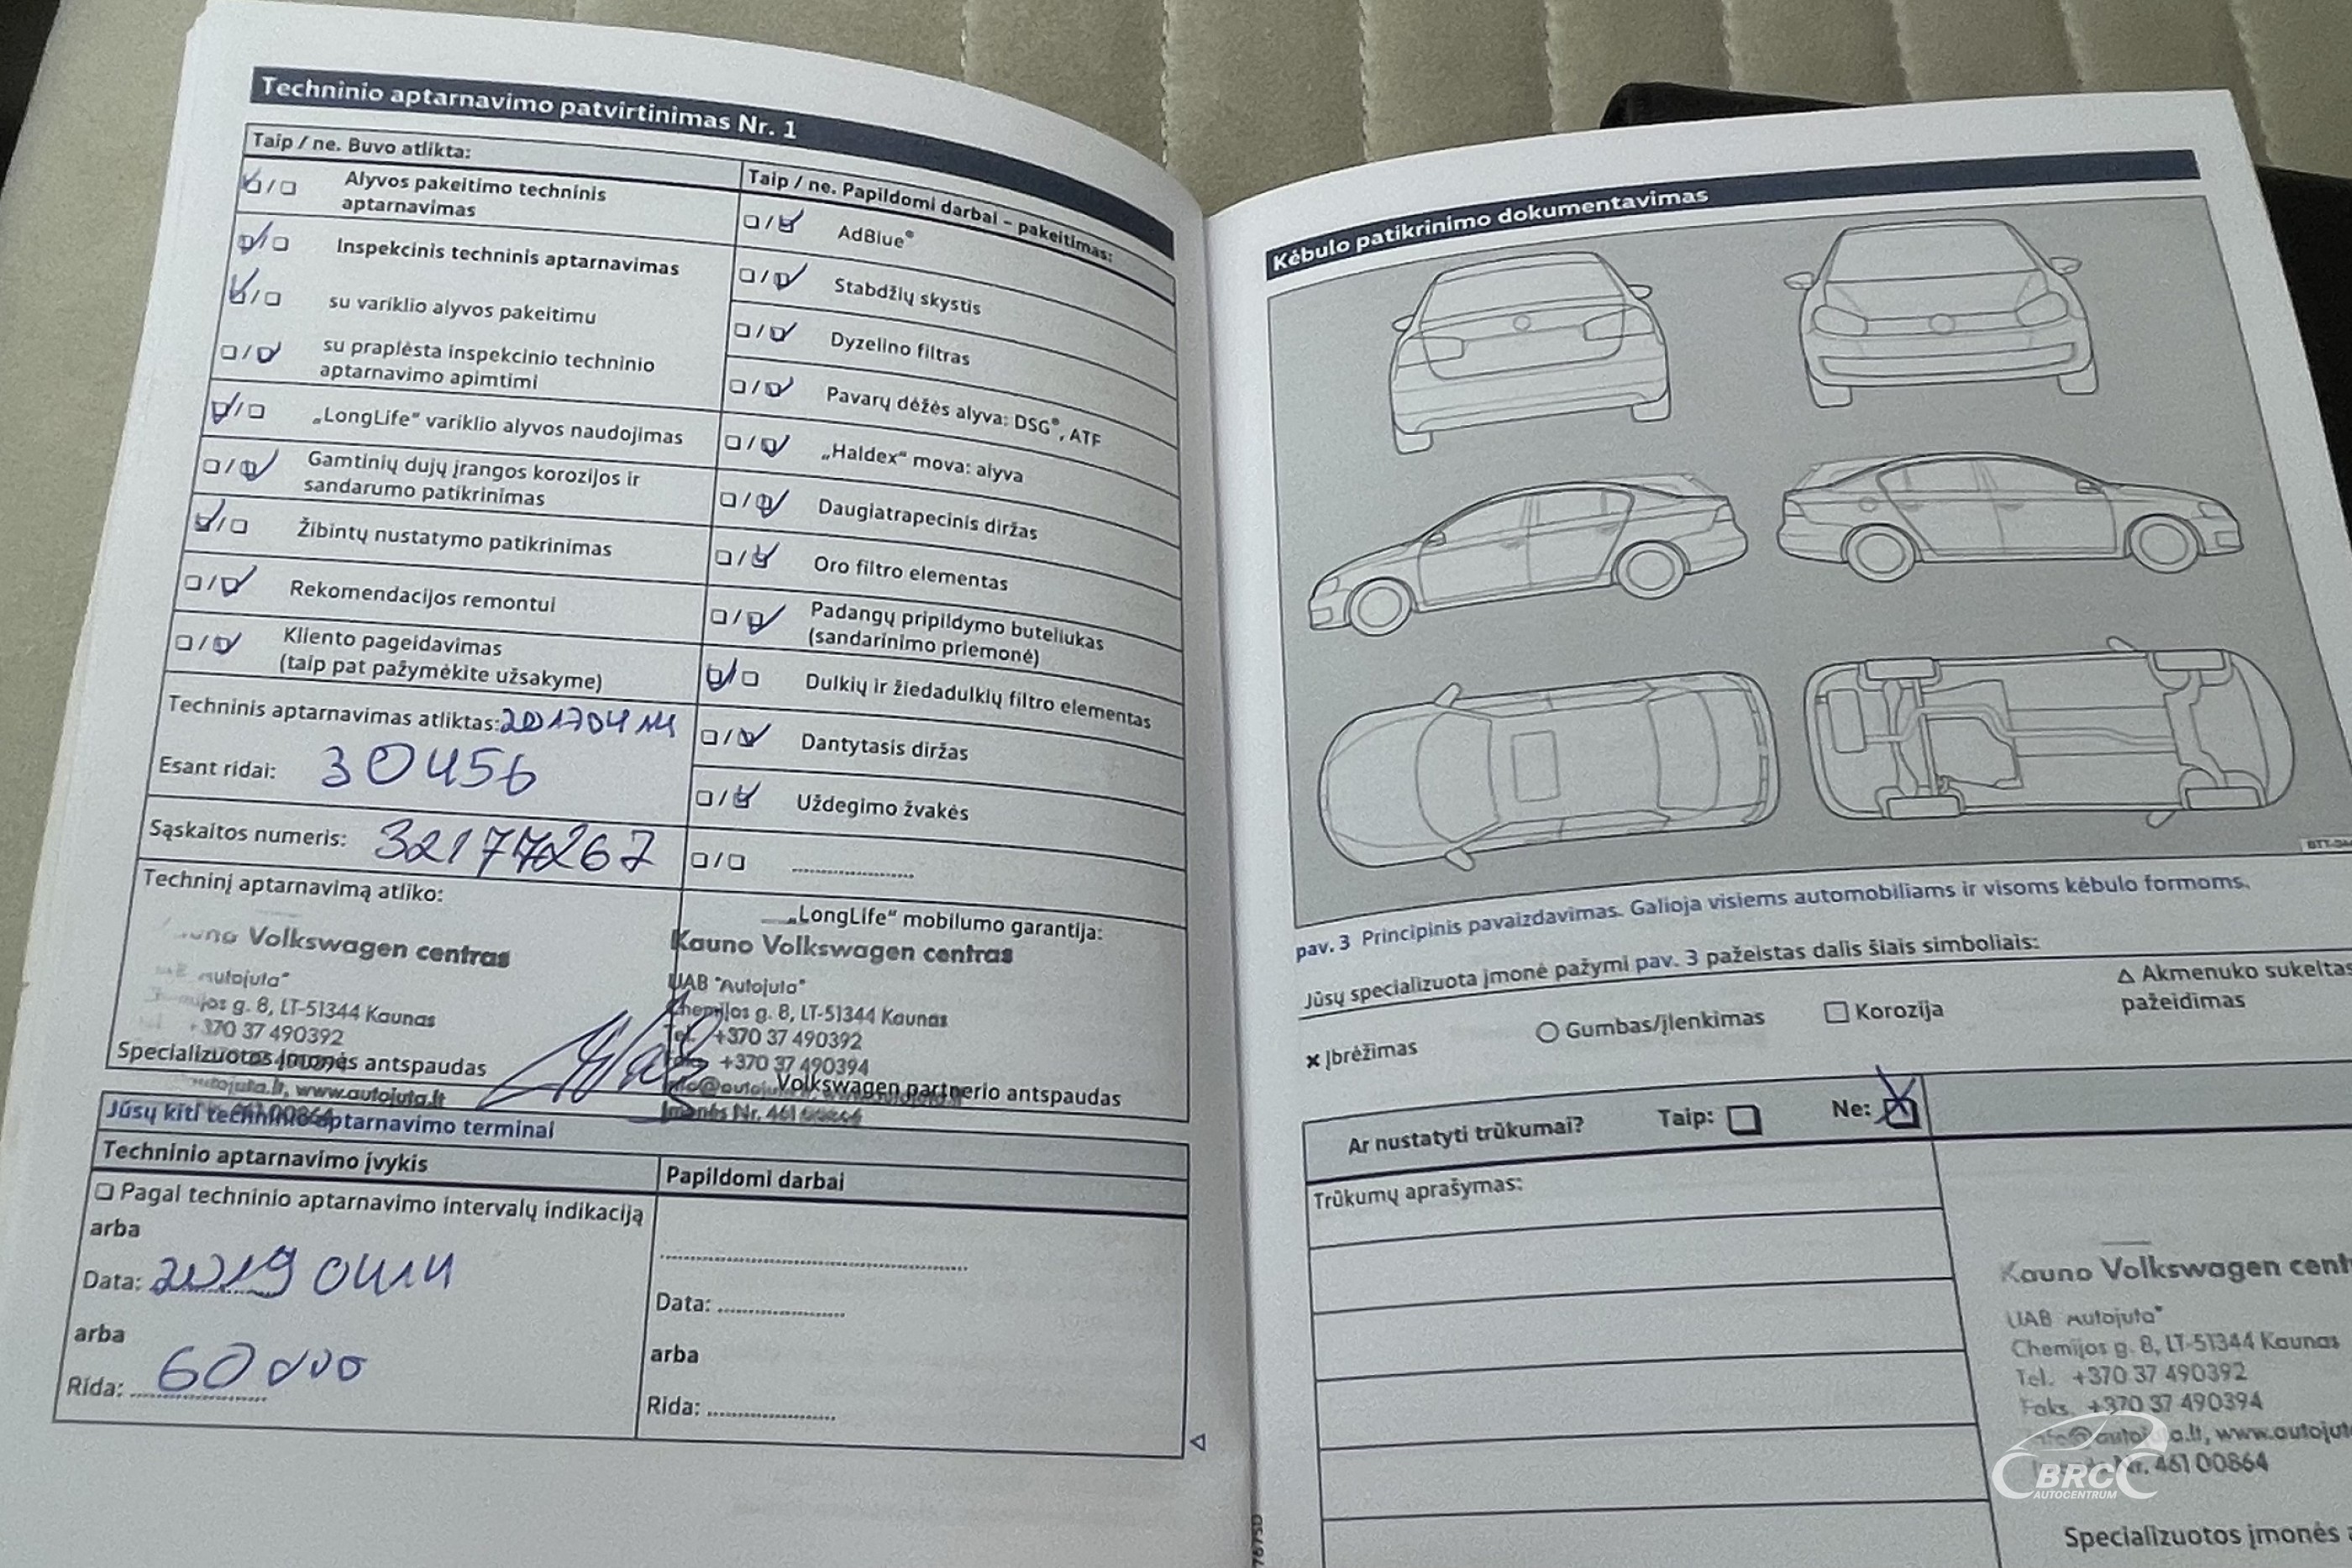 Techninio aptarnavimo patvirtinimas Nr. 1
Taip / ne. Buvo atlikta:
Alyvos pakeitimo techninis
aptarnavimas
Inspekcinis techninis aptarnavimas
su variklio alyvos pakeitimu
su praplėsta inspekcinio techninio
aptarnavimo apimtimi
„LongLife“ variklio alyvos naudojimas
Gamtinių dujų įrangos korozijos ir
sandarumo patikrinimas
Žibintų nustatymo patikrinimas
Rekomendacijos remontui
Kliento pageidavimas
(taip pat pažymėkite užsakyme)
Techninis aptarnavimas atliktas: 20170414
Esant ridai: 30456
Sąskaitos numeris:
Techninį aptarnavimą atliko:
Volkswagen centras
g. 8, LT-51344 Kaunas
+370 37 490392
Specializuotos įmonės antspaudas
www.autojuta.lt
Taip / ne. Papildomi darbai – pakeitimas:
AdBlue®
Stabdžių skystis
Dyzelino filtras
Pavarų dėžės alyva: DSG®, ATF
„Haldex“ mova: alyva
Daugiatrapecinis diržas
Oro filtro elementas
Padangų pripildymo buteliukas
(sandarinimo priemonė)
Dulkių ir žiedadulkių filtro elementas
Dantytasis diržas
Uždegimo žvakės
„LongLife“ mobilumo garantija:
Kauno Volkswagen centras
UAB "Autojuta"
Chemijos g. 8, LT-51344 Kaunas
Tel. +370 37 490392
+370 37 490394
Volkswagen partnerio antspaudas
Įmonės Nr. 461 00864
Jūsų kiti techninio aptarnavimo terminai
Techninio aptarnavimo įvykis
Pagal techninio aptarnavimo intervalų indikaciją
arba
Data: 2019 0414
arba
Rida: 60 000
Papildomi darbai
Data:
arba
Rida:
Kėbulo patikrinimo dokumentavimas
pav. 3 Principinis pavaizdavimas. Galioja visiems automobiliams ir visoms kėbulo formoms.
Jūsų specializuota įmonė pažymi pav. 3 pažeistas dalis šiais simboliais:
× Įbrėžimas
Gumbas/įlenkimas
Korozija
Δ Akmenuko sukeltas
pažeidimas
Ar nustatyti trūkumai? Taip: Ne:
Trūkumų aprašymas:
Kauno Volkswagen
UAB "Autojuta"
Chemijos g. 8, LT-51344 Kaunas
Tel. +370 37 490392
Faks. +370 37 490394
Nr. 461 00864
Specializuotos įmonės
BRC
AUTOCENTRUM